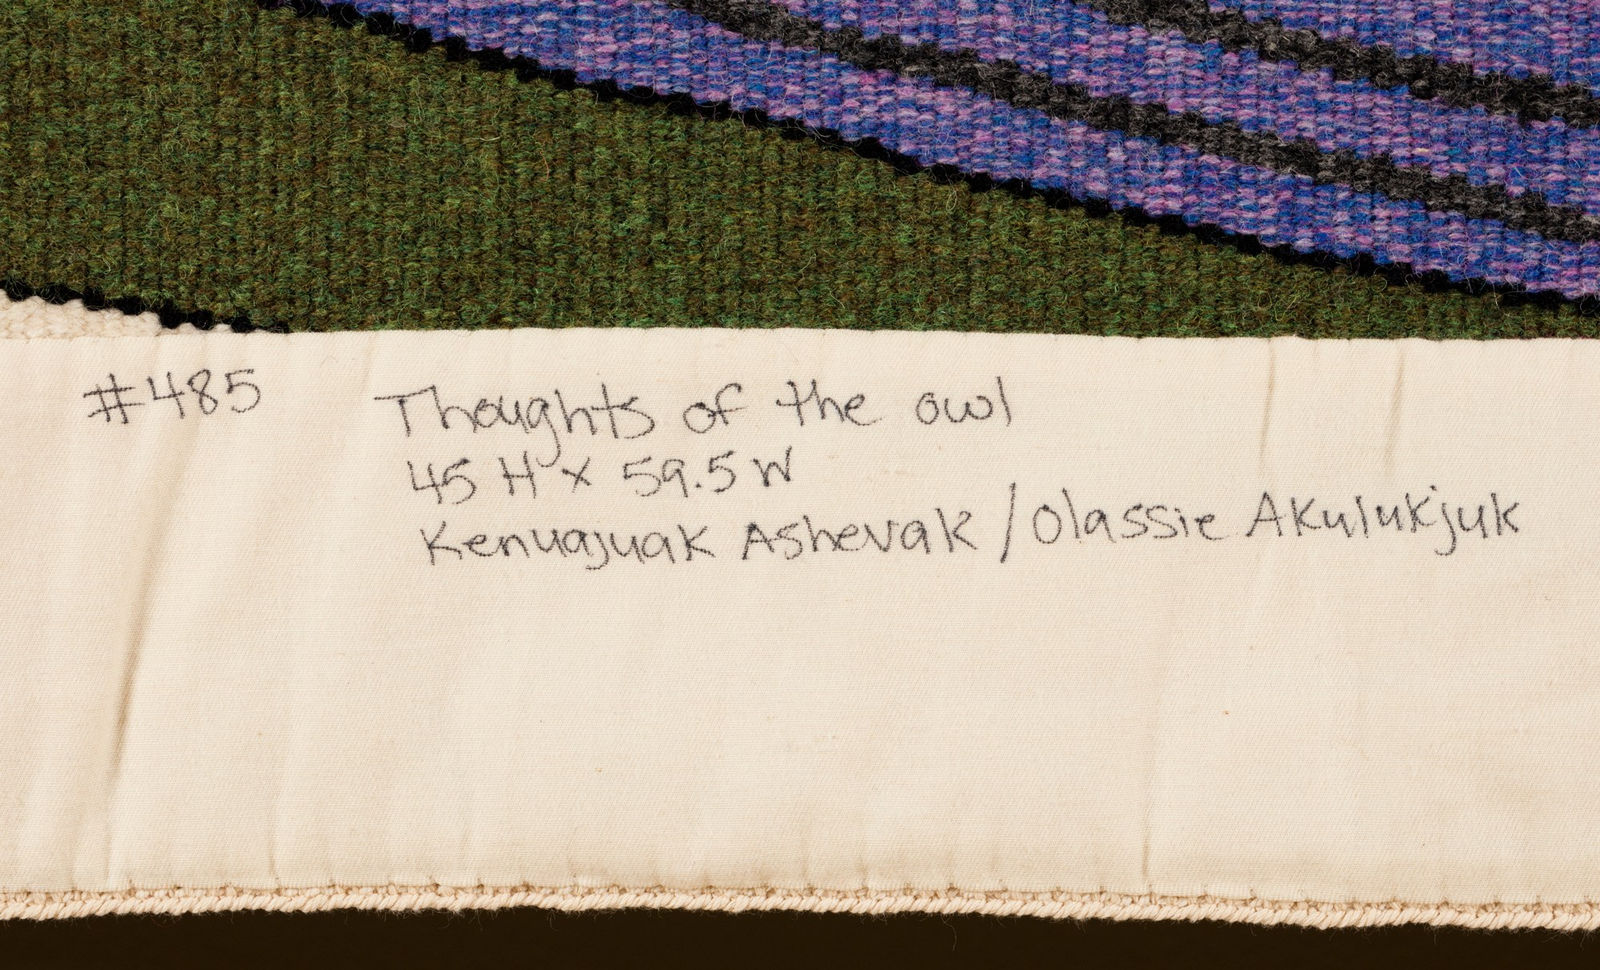 #485 Thoughts of the owl
45 H x 59.5 W
Kenuajuak Ashevak / Olassie Akulukjuk